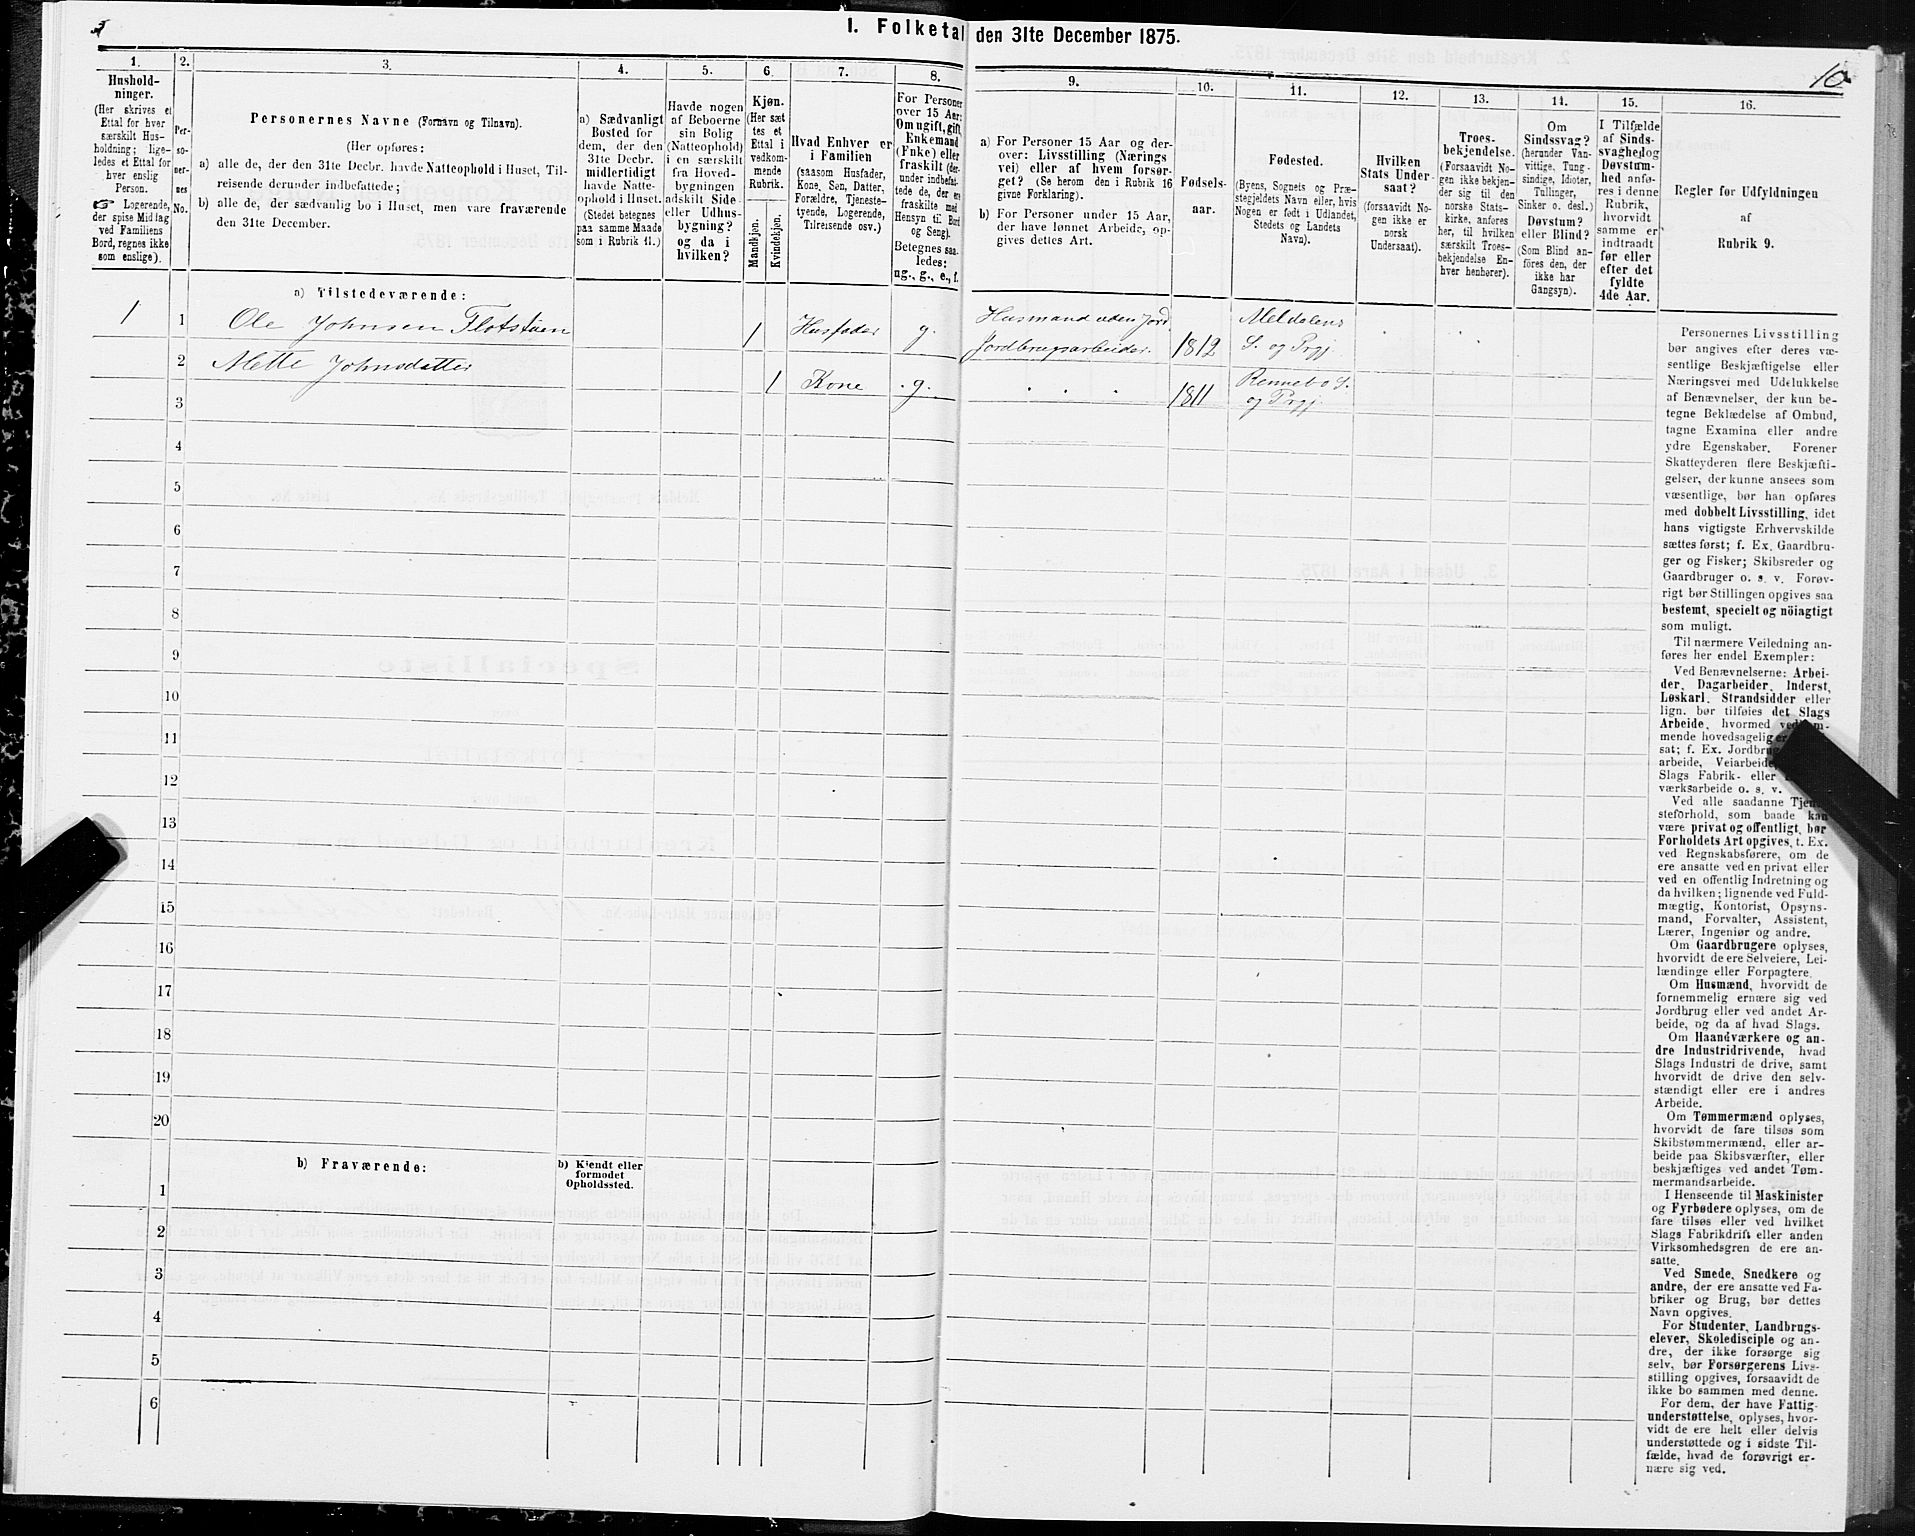 I. Folketal den 31te December 1875.
10
1.
Hushold-
ninger.
(Her skrives et
Ettal for hver
særskilt Hus-
holdning; lige-
ledes et Ettal for
hver enslig
Person.
☞ Logerende,
der spise Middag
ved Familiens
Bord, regnes ikke
som enslige).
2.
Per-
so-
ner-
nes
No.
3.
Personernes Navne (Fornavn og Tilnavn).
(Her opføres:
a) alle de, der den 31te Decbr. havde Natteophold i Huset, Til-
reisende derunder indbefattede;
b) alle de, der sædvanlig bo i Huset, men vare fraværende
den 31te December.
4.
a) Sædvanligt
Bosted for
dem, der den
31te Decbr.
midlertidigt
havde Natte-
ophold i Huset.
(Stedet betegnes
paa samme Maade
som i Rubrik 11.)
5.
Havde nogen
af Beboerne
sin Bolig
(Natteophold)
i en særskilt
fra Hoved-
bygningen
adskilt Side-
eller Udhus-
bygning?
og da i
hvilken?
6.
Kjøn.
(Her sæt-
tes et
Ettal i
vedkom-
mende
Rubrik.
Mandkjøn.
Kvindekjøn.
7.
Hvad Enhver er
i Familien
(saasom Husfader,
Kone, Søn, Datter,
Forældre, Tjeneste-
tyende, Logerende,
Tilreisende osv.)
8.
For Personer
over 15 Aar:
Om ugift, gift,
Enkemand
(Enke) eller
fraskilt (der-
under indbefat-
tede de, der ere
fraskilte med
Hensyn til Bord
og Seng).
Betegnes saa-
ledes:
ug., g., e., f.
9.
a) For Personer 15 Aar og der-
over: Livsstilling (Nærings-
vei) eller af hvem forsør-
get? (Se herom den i Rubrik 16
givne Forklaring).
b) For Personer under 15 Aar,
der have lønnet Arbeide, op-
gives dettes Art.
10.
Fødsels-
aar.
11.
Fødested.
(Byens, Sognets og Præ-
stegjeldets Navn eller, hvis
Nogen er født i Udlandet,
Stedets og Landets
Navn).
12.
Hvilken
Stats Under-
saat?
(forsaavidt No-
gen ikke er
norsk
Undersaat).
13.
Troes-
bekjendelse.
(Forsaavidt Nogen
ikke bekjen-
der sig til den
norske Stats-
kirke, anføres
her, til hvilken
særskilt Troes-
bekjendelse En-
hver henhører).
14.
Om
Sindssvag?
(herunder Van-
vittige, Tung-
sindige, Idioter,
Tullinger,
Sinker o. desl.)
Døvstum?
eller Blind?
(Som Blind an-
føres den, der
ikke har
Gangsyn).
15.
I Tilfælde
af Sinds-
svaghed og
Døvstum-
hed anfø-
res i denne
Rubrik,
hvorvidt
samme er
indtraadt
før eller
efter det
fyldte
4de Aar.
16.
Regler for Udfyldningen
af
Rubrik 9.
a) Tilstedeværende:
1 1 Ole Johnsen Flotstuen 1 Husfader g. Husmand uden Jord Jordbrugsarbeider. 1812 Meldalens S. og Prgj.
2 Mette Johnsdatter 1 Kone g. 1811 Rennebo S. og Prgj.
3
4
5
6
7
8
9
10
11
12
13
14
15
16
17
18
19
20
b) Fraværende:
b) Kjendt eller
formodet
Opholdssted.
1
2
3
4
5
6
Personernes Livsstilling
bør angives efter deres væ-
sentlige Beskjæftigelse eller
Næringsvei med Udelukkelse
af Benævnelser, der kun be-
tegne Beklædelse af Ombud,
tagne Examina eller andre
ydre Egenskaber. Forener
Skatteyderen flere Beskjæfti-
gelser, der kunne ansees som
væsentlige, bør han opføres
med dobbelt Livsstilling, idet
hans vigtigste Erhvervskilde
sættes først; f. Ex. Gaardbru-
ger og Fisker; Skibsreder og
Gaardbruger o. s. v. Forøv-
rigt bør Stillingen opgives saa
bestemt, specielt og nöiagtigt
som muligt.
Til nærmere Veiledning an-
føres her endel Exempler:
Ved Benævnelserne: Arbei-
der, Dagarbeider, Inderst,
Løskarl, Strandsidder eller
lign. bør tilføies det Slags
Arbeide, hvormed
mende hovedsagelig er
sat; f. Ex. Jordbrug
arbeide, Veiarbeide,
Slags Fabrik- eller
værksarbeide o. s. v.
Ved alle saadanne
steforhold, som baade kan
være privat og offentligt, bør
Forholdets Art opgives, f. Ex.
ved Regnskabsførere, om de
ere ansatte ved en privat eller
ved en offentlig Indretning og
da hvilken; lignende ved Fuld-
mægtig, Kontorist, Opsyns-
mand, Forvalter, Assistent,
Lærer, Ingeniør og andre.
Om Gaardbrugere oplyses,
hvorvidt de ere Selveiere, Lei-
lændinge eller Forpagtere.
Om Husmænd, hvorvidt de
fornemmelig ernære sig ved
Jordbrug eller ved andet Ar-
beide, og da af hvad Slags.
Om Haandværkere og an-
dre Industridrivende, hvad
Slags Industri de drive, samt
hvorvidt de drive den selv-
stændigt eller ere i andres
Arbeide.
Om Tømmermænd oplyses,
hvorvidt de fare tilsøs som
Skibstømmermænd, eller ar-
beide paa Skibsværfter, eller
beskjæftiges ved andet Tøm-
mermandsarbeide.
I Henseende til Maskinister
og Fyrbødere oplyses, om de
fare tilsøs eller ved hvilket
Slags Fabrikdrift eller anden
Virksomhedsgren de ere an-
satte.
Ved Smede, Snedkere og
andre, der ere ansatte ved Fa-
briker og Brug, bør dettes
Navn opgives.
For Studenter, Landbrugs-
elever, Skoledisciple og an-
dre, der ikke forsørge sig
selv, bør Forsørgerens Livs-
stilling opgives, forsaavidt de
ikke bo sammen med denne.
For dem, der have Fattig-
understøttelse, oplyses, hvor-
vidt de ere helt eller delvis
understøttede og i sidste Til-
fælde, hvad de forøvrigt er-
nære sig ved.